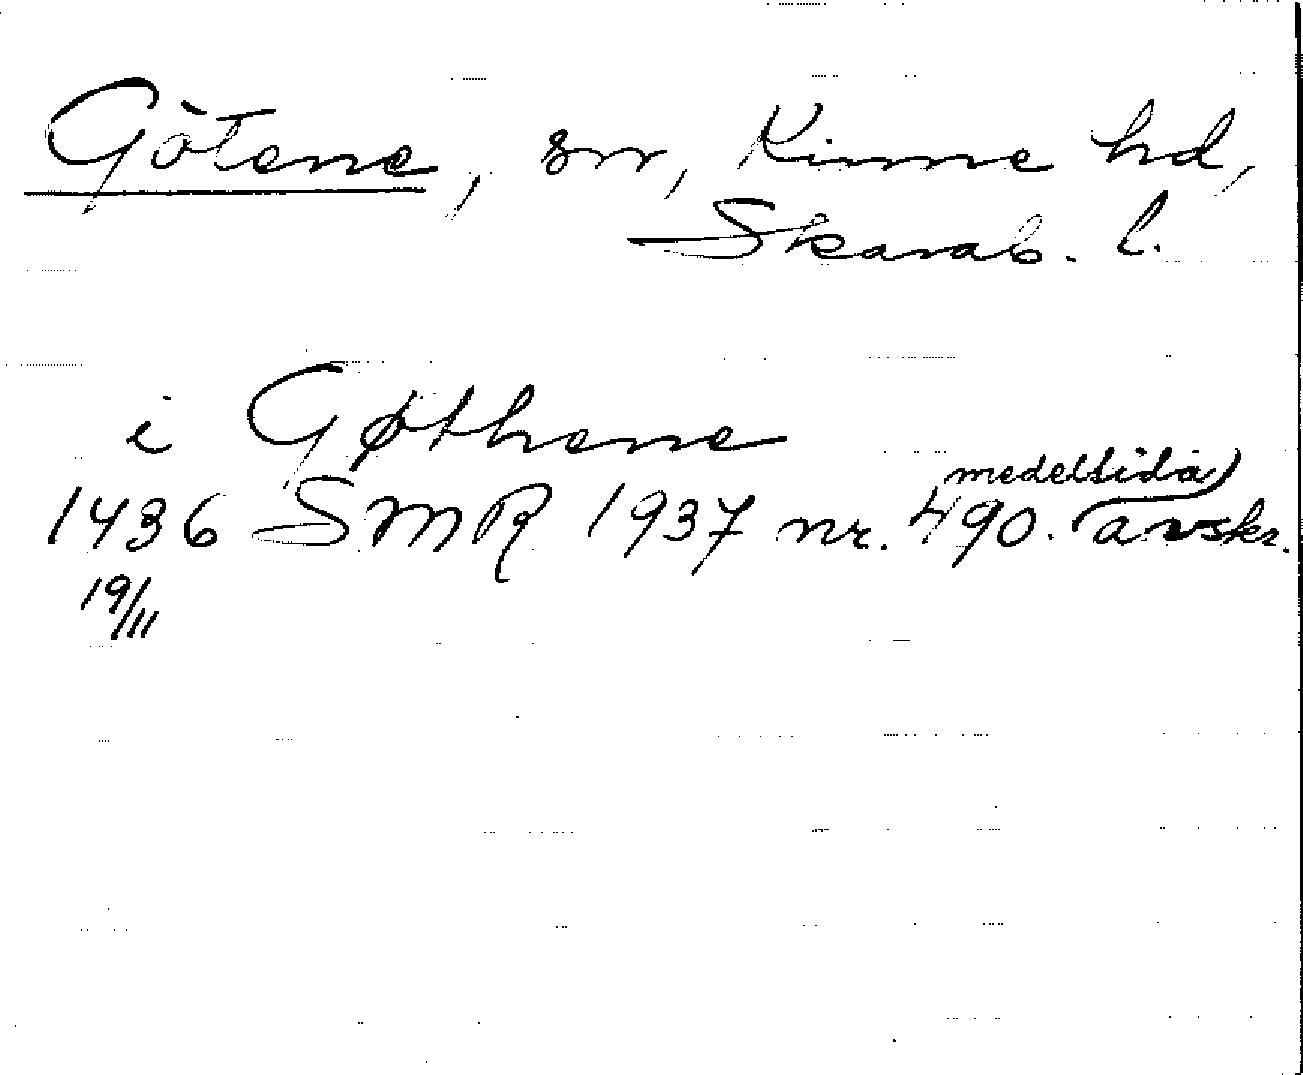 Götene, sn, Kinne hd,
Skarab. l.
i Gøthene
medeltida
1436 SMR 1937 nr. 490. avskr.
19/11